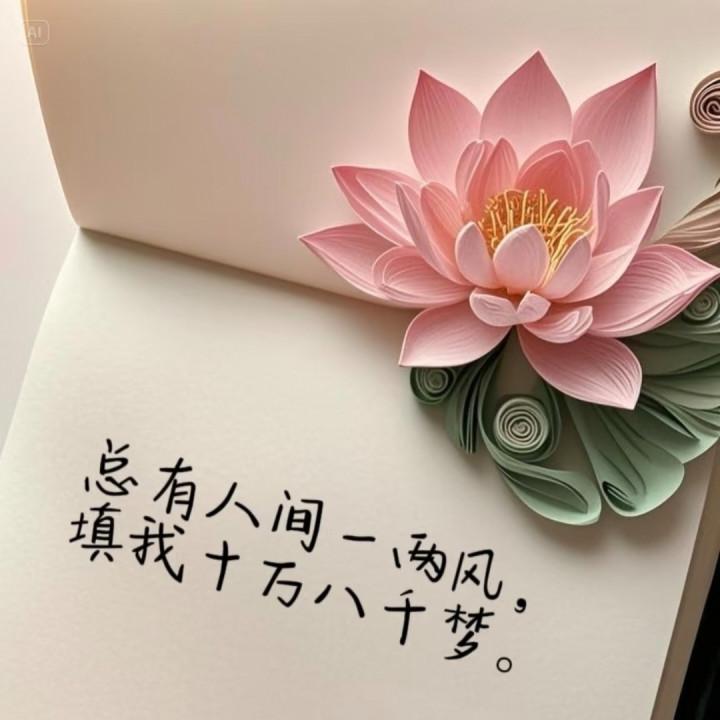 AI
总有人间一两风，
填我十万八千梦。